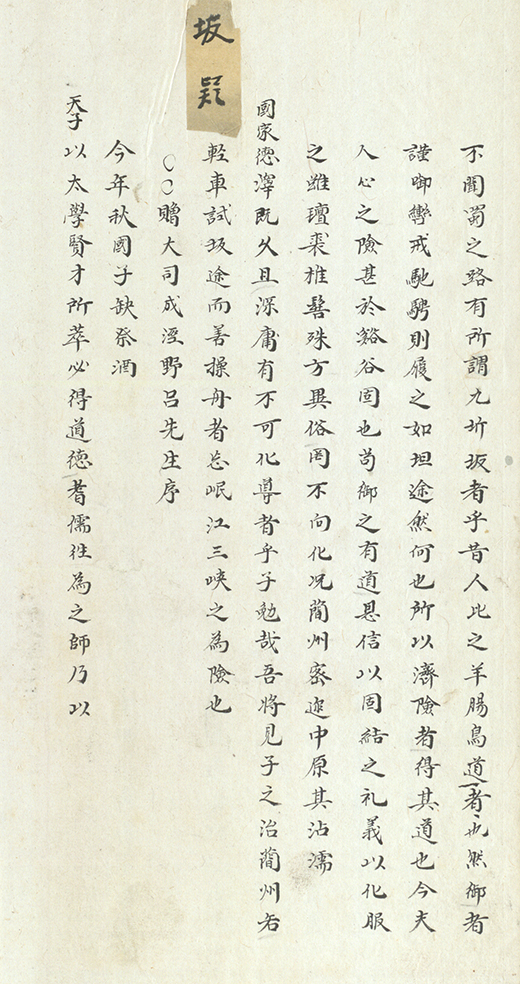 不聞蜀之路有所謂九圻坂者乎昔人比之羊腸鳥道者也然御者
謹啣轡戒馳騁則履之如坦途然何也所以濟險者得其道也今夫
人心之險甚於谿谷固也苟御之有道恩信以固結之礼義以化服
之雖氊裘椎髻殊方異俗罔不向化况蔄州密迩中原其沾濡
國家德澤既久且深庸有不可化導者乎子勉哉吾將見子之治蔄州若
軽車試坂途而善操舟者忘岷江三峽之為險也
○○贈大司成涇野呂先生序
今年秋國子缺祭酒
天子以太學賢才所萃必得道德耆儒徃為之師乃以
坂疑